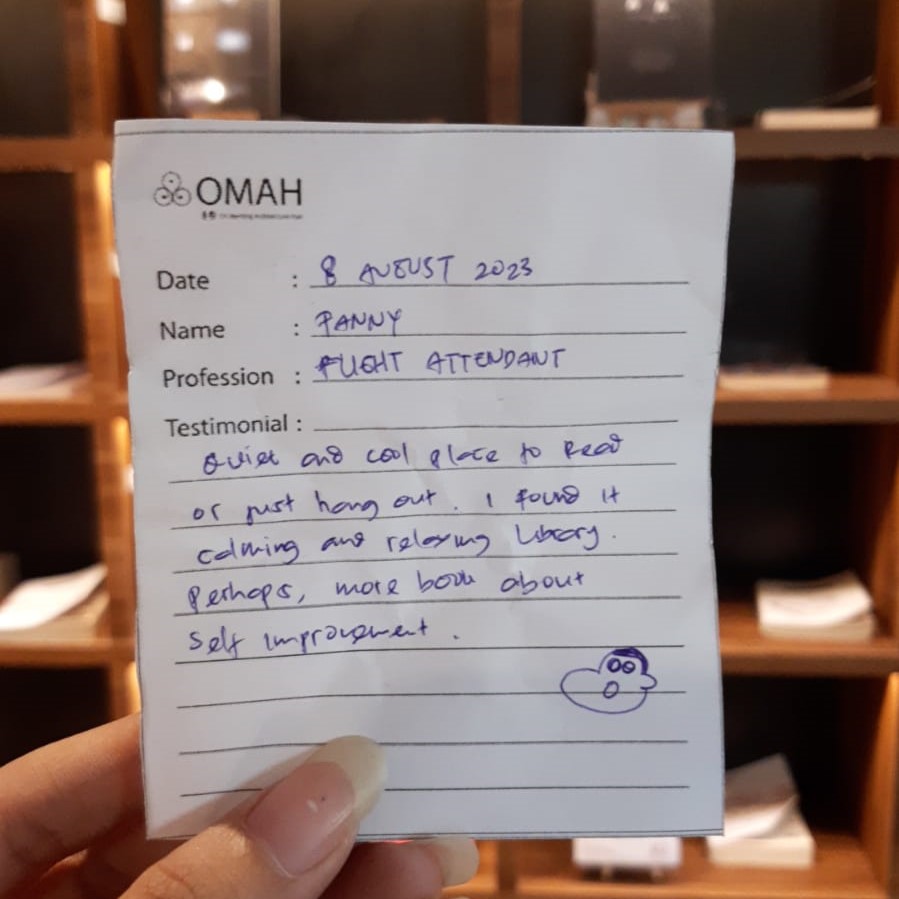 OMAH
Date : 8 AUGUST 2023
Name : FANNY
Profession : FLIGHT ATTENDANT
Testimonial :
Quiet and cool place to Read
or just hang out. I found it
calming and relaxing Library.
Perhaps, more book about
self improvement.